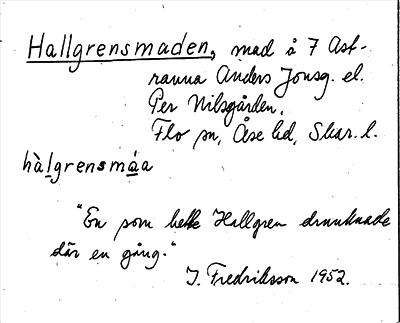 Hallgrensmaden, mad å 7 Ast-
ranna Anders Jonsg. el.
Per Nilsgården.
Flo sn, Åse hd, Skar. l.
hàlgrensmáa
"En som hette Hallgren drunknade
där en gång."
J. Fredriksson 1952.